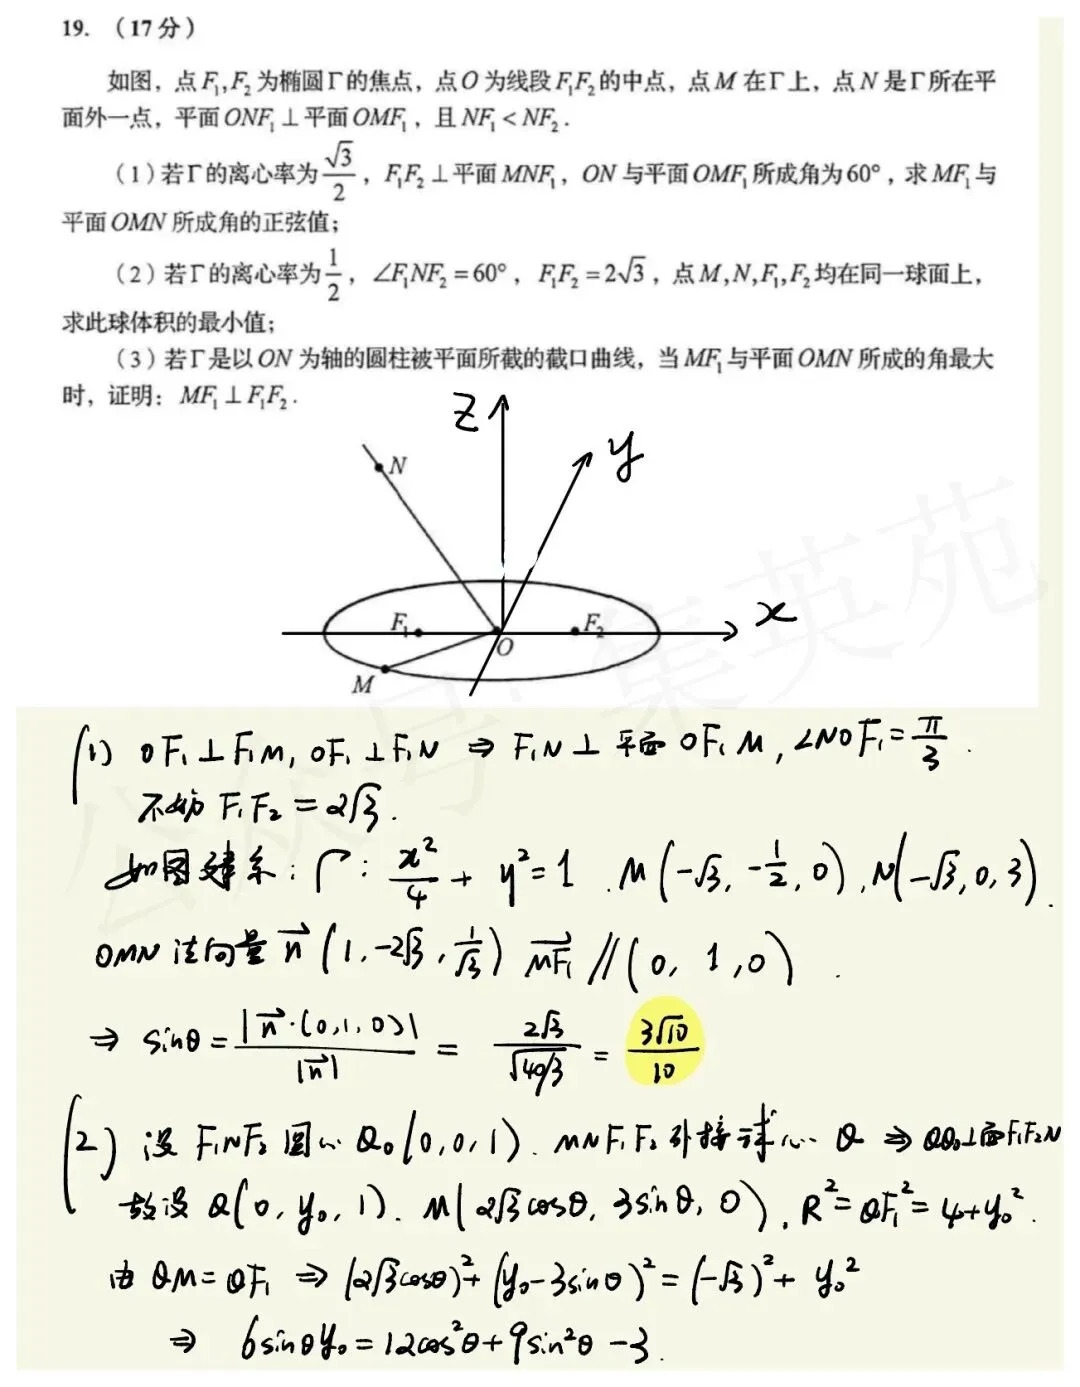 19. （17分）
如图，点F₁,F₂为椭圆Γ的焦点，点O为线段F₁F₂的中点，点M在Γ上，点N是Γ所在平
面外一点，平面ONF₁⊥平面OMF₁，且NF₁<NF₂.
（1）若Γ的离心率为√3/2，F₁F₂⊥平面MNF₁，ON与平面OMF₁所成角为60°，求MF₁与
平面OMN所成角的正弦值；
（2）若Γ的离心率为1/2，∠F₁NF₂=60°，F₁F₂=2√3，点M,N,F₁,F₂均在同一球面上，
求此球体积的最小值；
（3）若Γ是以ON为轴的圆柱被平面所截的截口曲线，当MF₁与平面OMN所成的角最大
时，证明：MF₁⊥F₁F₂.
z
y
N
x
F₁
F₂
O
M
(1) OF₁⊥F₁M, OF₁⊥F₁N ⇒ F₁N⊥平面OF₁M, ∠NOF₁=π/3.
不妨F₁F₂=2√3.
如图建系: Γ: x²/4+y²=1. M(-√3,-1/2,0), N(-√3,0,3).
OMN法向量n⃗(1,-2√3,1/√3) MF₁⃗∥(0,1,0).
⇒ sinθ=|n⃗·(0,1,0)|/|n⃗| = 2√3/√(40/3) = 3√10/10
(2) 设F₁NF₂圆心Q₀(0,0,1). MNF₁F₂外接球心Q ⇒ QQ₀⊥面F₁F₂N
故设Q(0,y₀,1). M(2√3cosθ,3sinθ,0), R²=QF₁²=4+y₀².
由QM=QF₁ ⇒ (2√3cosθ)²+(y₀-3sinθ)²=(-√3)²+y₀²
⇒ 6sinθy₀=12cos²θ+9sin²θ-3.
公众号·集英苑